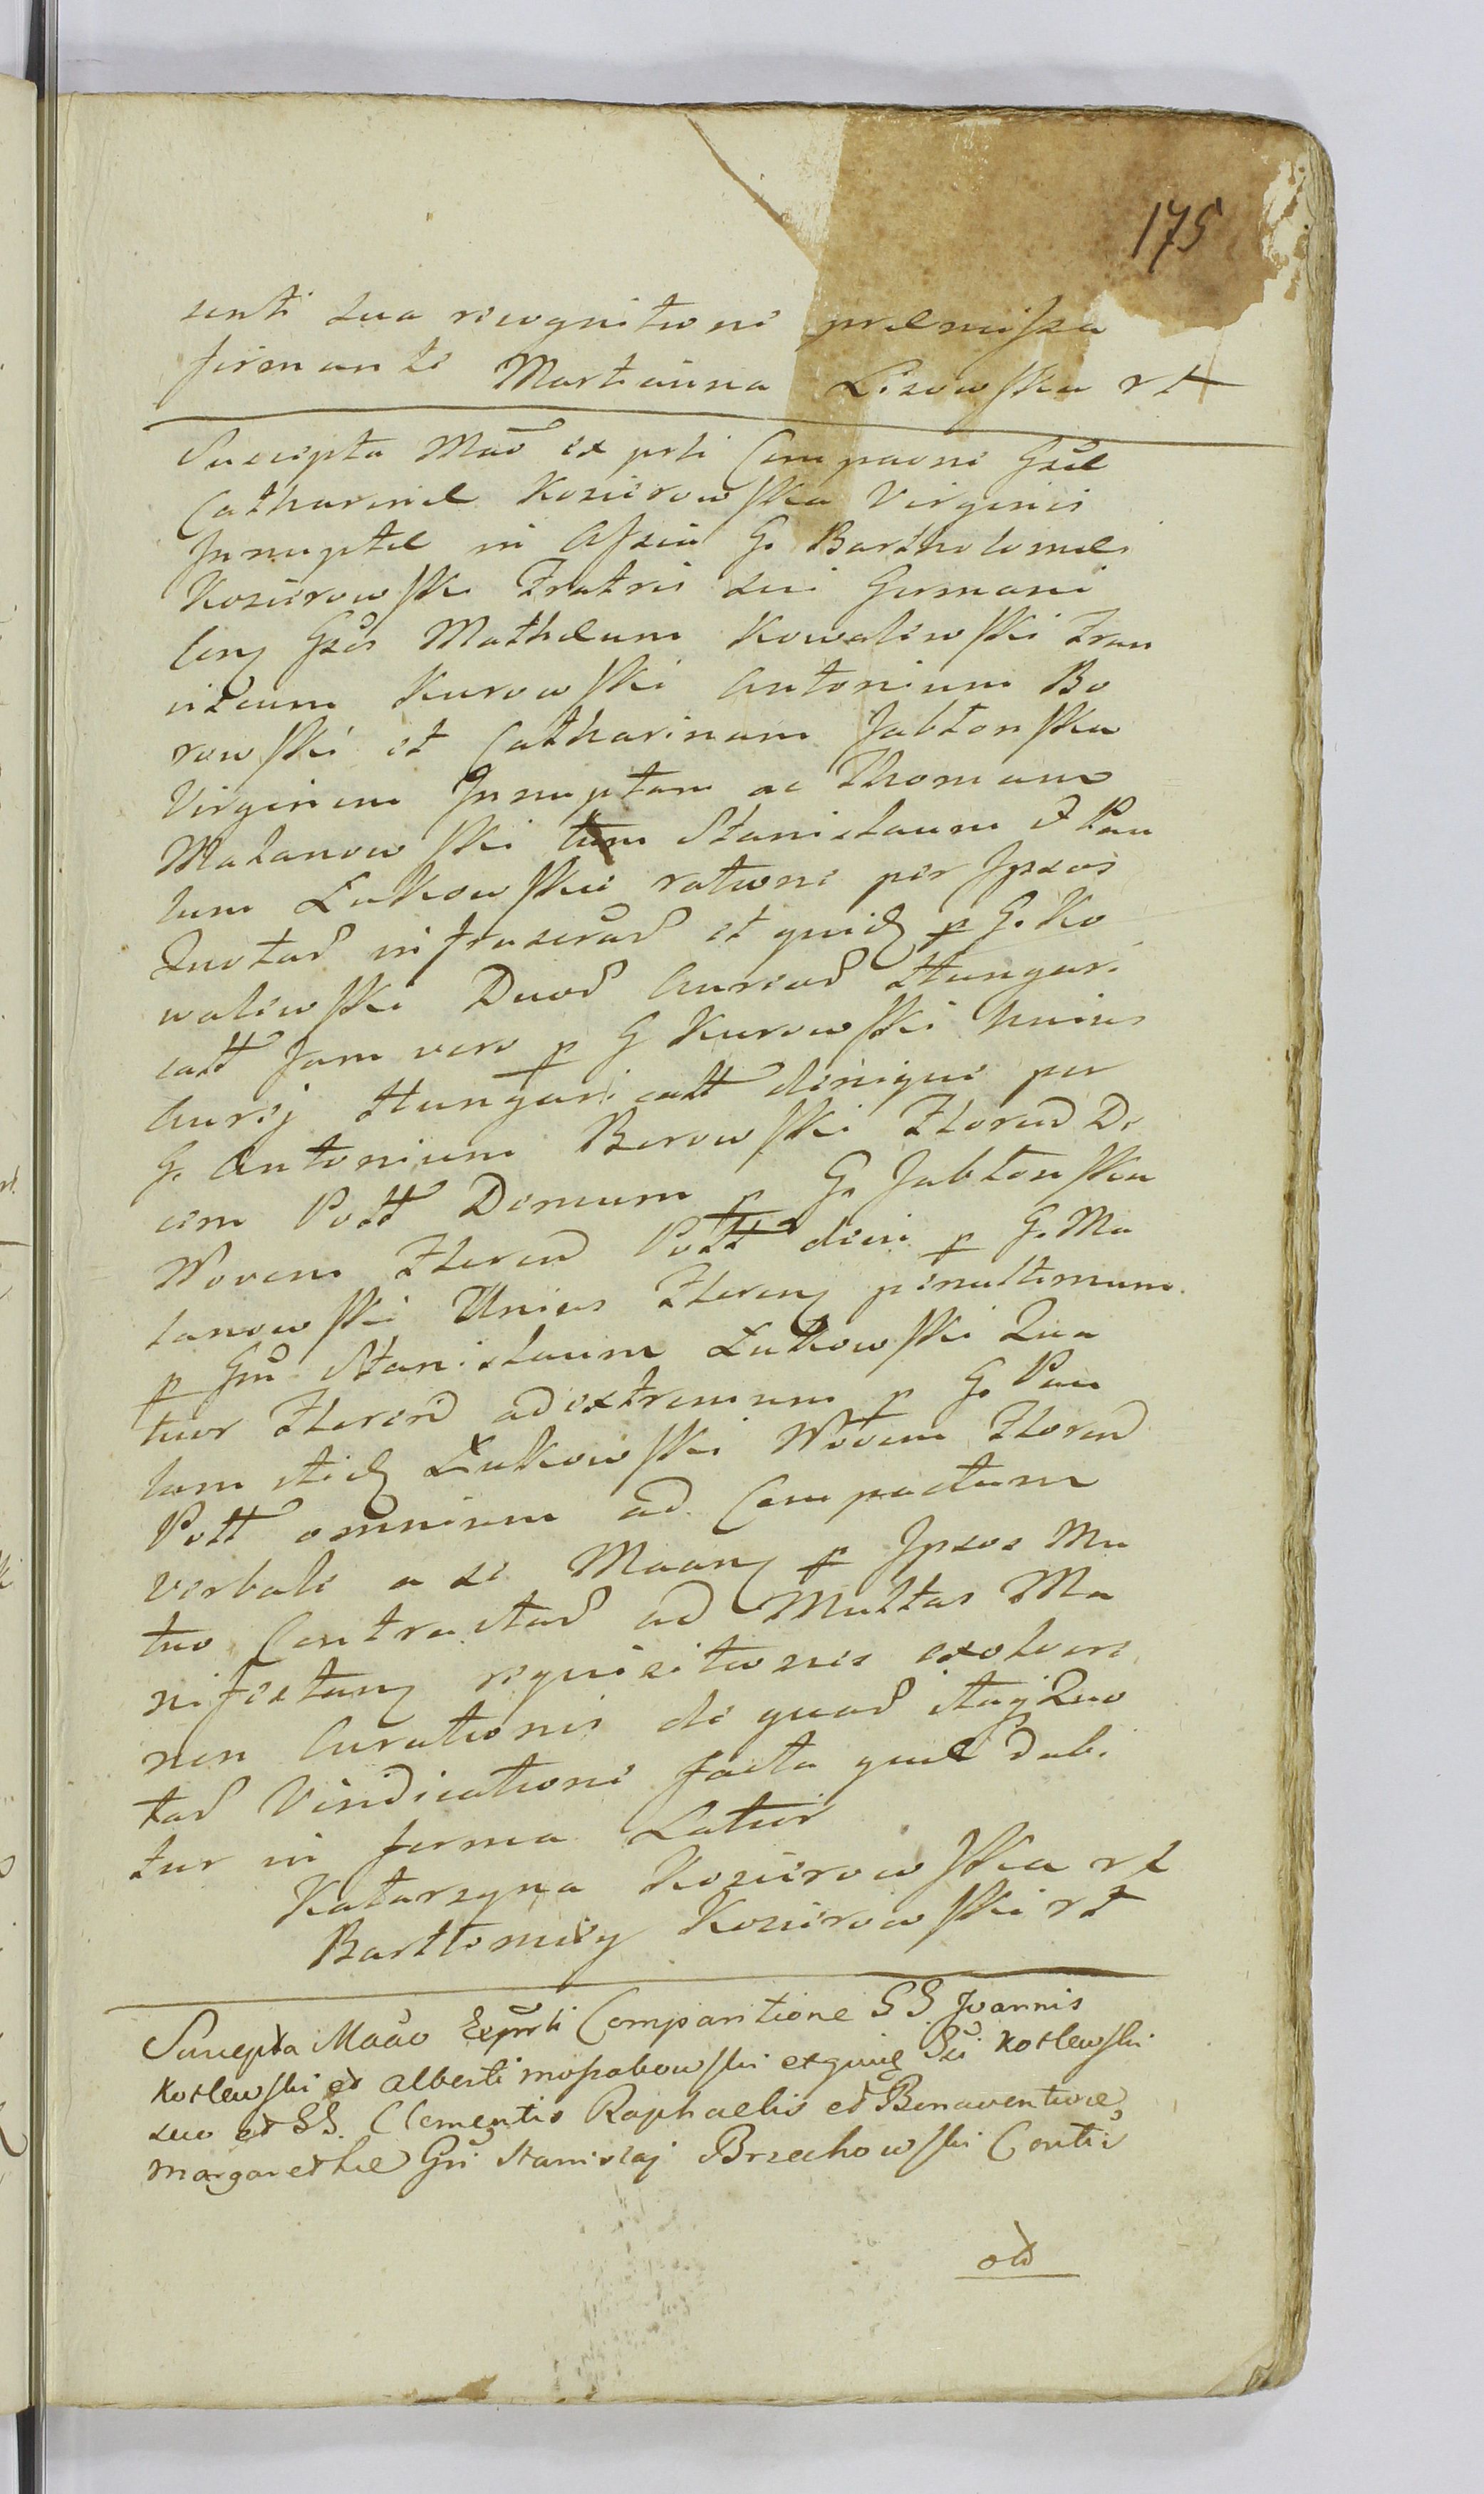 175
senti sua recognitione praemissa
firmante Martianna Lisowska rt
Suscepta Maō ex prti Comparōne Gsae
Catharinae Kosierowska Virginis
Innuptae in Assia G. Bartholomei
Kosierowski Fratris sui Germani
Gsos Mathaeum Kowalewski Fran
ciscum Kurowski Antonium Bo
rowski et Catharinam Jabłonska
Virginem Innuptam ac Thomam
Małanowski tum Stanisłaum & Pau
lum Łukowskie ratione per Ipsos
Quotar infrascrar et quidq p G. Ko
walewski Duor Aureor Hungari
catt Jam vero p G Kurowski Unius
Aurej Hungaricatt denique per
G. Antonium Borowski Floren De
cem Poll Demum p G. Jabłonska
Novem Floren Poll dein p G. Ma
łanowski Unius Floreny penultimum
p Gm Stanisłaum Łukowski Qua
tuor Floren ad extremum p G. Pau
lum itidq Łukowski Novem Floren
Poll omnium ad Compactum
verbale a se p Ipsos Mu
tuo Contractar ad Multas Ma
nifestam requisitiones exolvere
non Curationis de quar itaq Quo
tar Vindicatione facta quae dabi
tur in forma Latior
Katarzyna Kosierowska rt
Bartłomiey Kosierowski rt
Suscepta Maāo Exprti Comparitione GG. Joannis
Kotlewski et Alberti Mossakowski exquiq Gsi Kotlewski
suo et GG. Clementis Raphaelis et Bonaventurae
Margarethae Gsi Stanislaj Brzechowski Contis